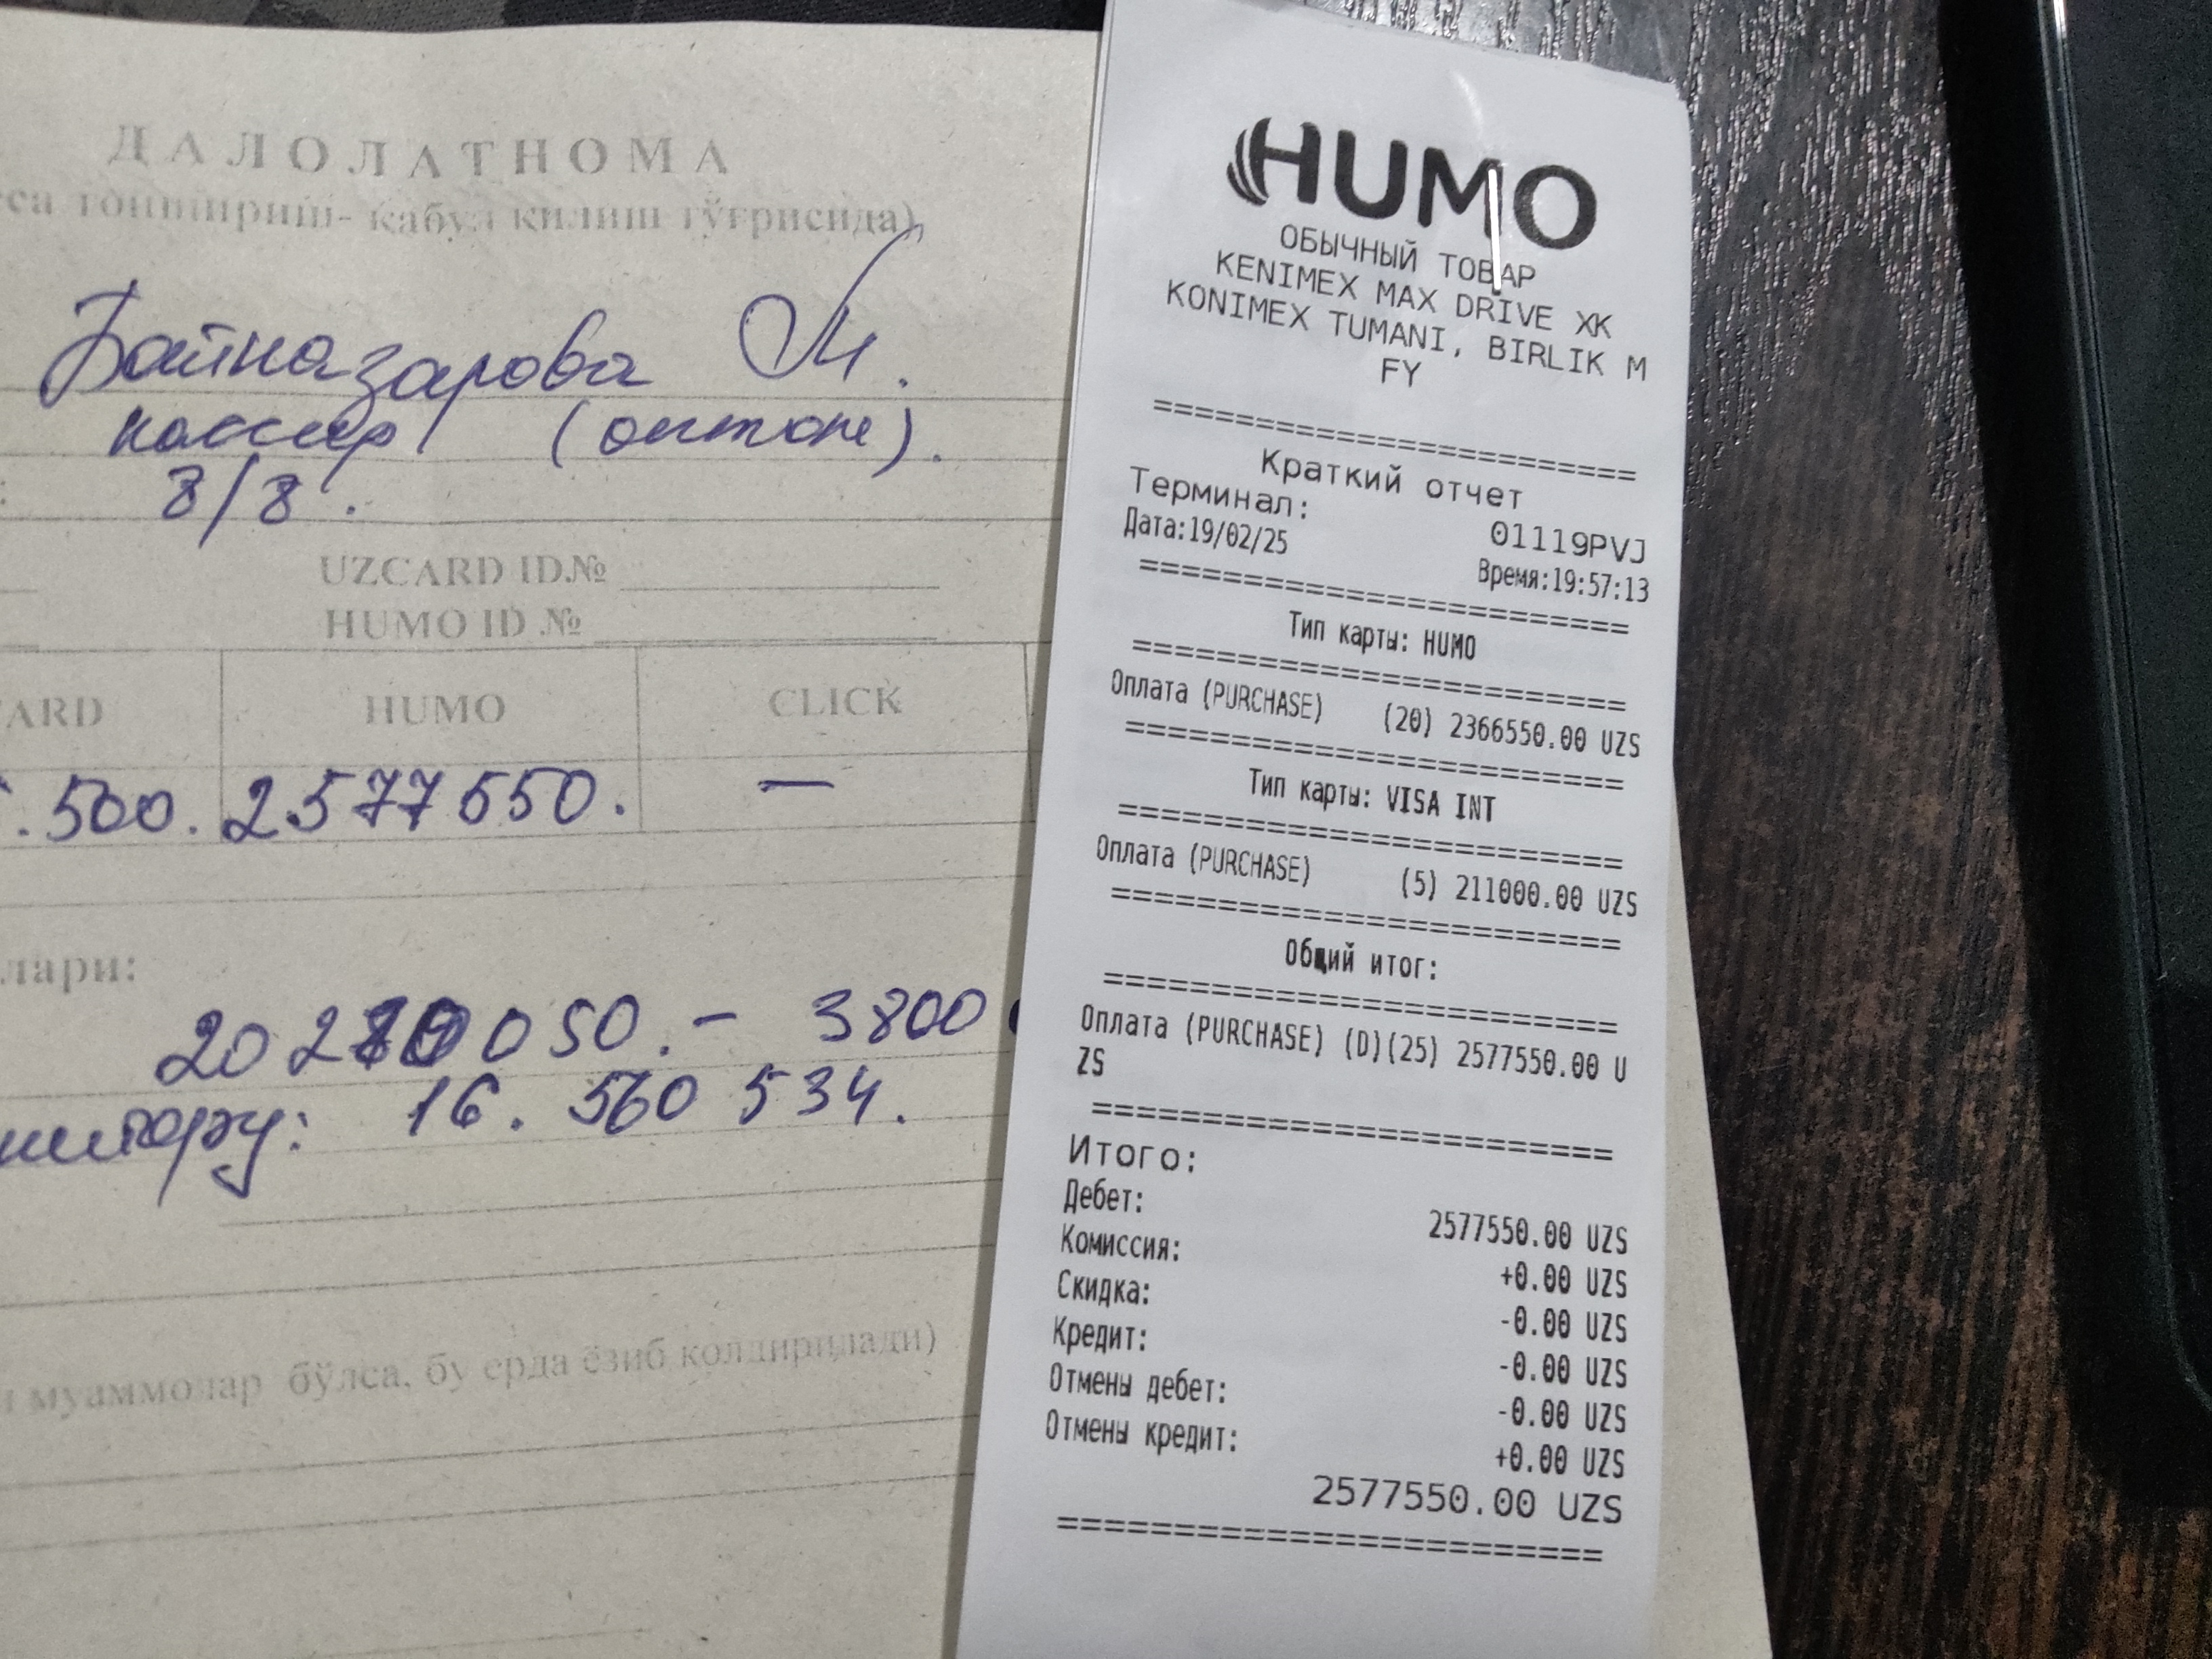 ДАЛОЛАТНОМА
топшириш- қабул қилиш тўғрисида)
Байназарова М.
кассир
8/8.
UZCARD ID.№
HUMO ID №
ARD HUMO CLICK
.500. 2577550. —
лари:
050. - 3800
16. 560 534.
муаммолар бўлса, бу ерда ёзиб қолдирилади)
HUMO
ОБЫЧНЫЙ ТОВАР
KENIMEX MAX DRIVE XK
KONIMEX TUMANI, BIRLIK M
FY
=======================
Краткий отчет
Терминал: 01119PVJ
Дата:19/02/25 Время:19:57:13
=======================
Тип карты: HUMO
=======================
Оплата (PURCHASE) (20) 2366550.00 UZS
=======================
Тип карты: VISA INT
=======================
Оплата (PURCHASE) (5) 211000.00 UZS
=======================
Общий итог:
=======================
Оплата (PURCHASE) (D)(25) 2577550.00 U
ZS
=======================
Итого:
Дебет: 2577550.00 UZS
Комиссия: +0.00 UZS
Скидка: -0.00 UZS
Кредит: -0.00 UZS
Отмены дебет: -0.00 UZS
Отмены кредит: +0.00 UZS
2577550.00 UZS
=======================